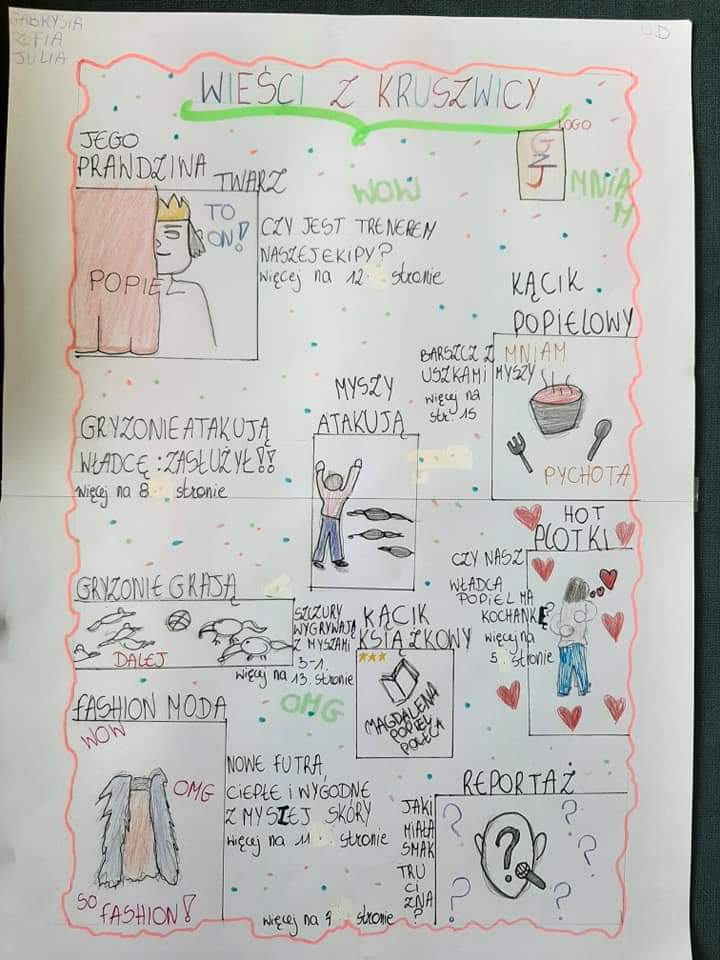 GABRYSIA
ZOFIA
JULIA
WIEŚCI Z KRUSZWICY
LOGO
GZJ
JEGO
PRANDZIWA TWARZ
TO
ON!
POPIEL
WOW
MNIA
M
CZY JEST TRENEREM
NASZEJ EKIPY?
więcej na 12 stronie
KĄCIK
POPIELOWY
BARSZCZ Z
USZKAMI MYSZY
więcej na
str. 15
MNIAM
PYCHOTA
MYSZY
ATAKUJĄ
GRYZONIE ATAKUJĄ
WŁADCĘ: ZASŁUŻYŁ!!
więcej na 8 stronie
HOT
PLOTKI
CZY NASZ
WŁADCA
POPIEL MA
KOCHANKĘ?
więcej na
5 stronie
GRYZONIE GRAJĄ
DALEJ
SZCZURY
WYGRYWAJĄ
Z MYSZAMI
3-1.
więcej na 13. stronie
KĄCIK
KSIĄŻKOWY
MAGDALENA
POPIEL
POLECA
OMG
FASHION MODA
WOW
OMG
SO FASHION!
NOWE FUTRA,
CIEPŁE I WYGODNE
Z MYSZEJ SKÓRY
więcej na 11 stronie
REPORTAŻ
JAKI
MIAŁA
SMAK
TRU
CI
ZNA
?
? ? ? ? ? ?
więcej na 9 stronie